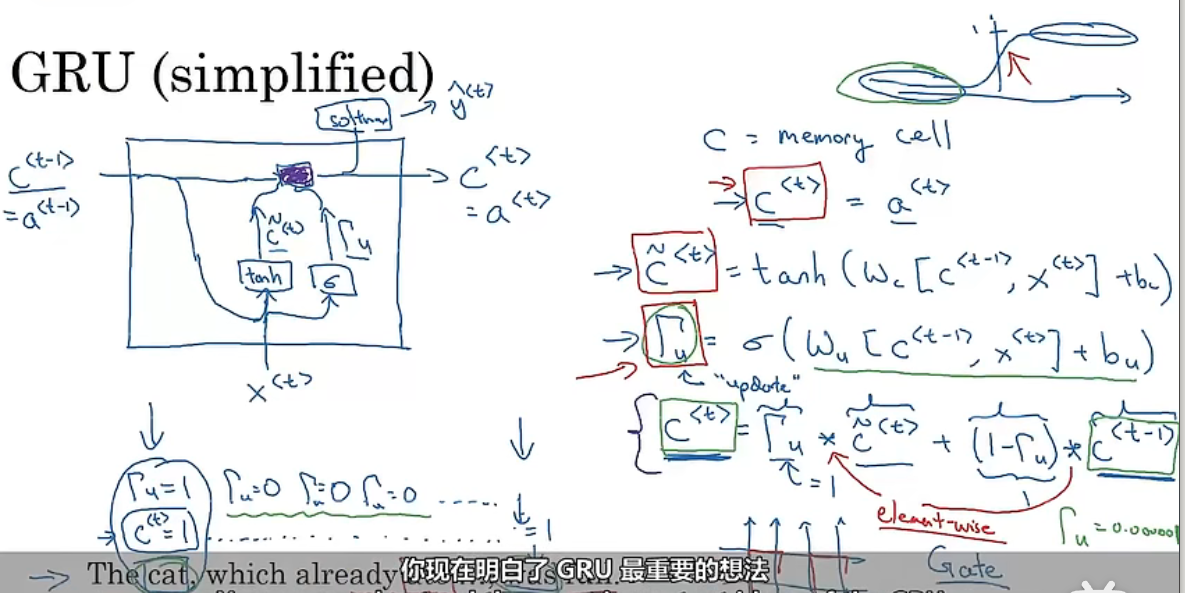 GRU (simplified)
softmax → ŷ<t>
c<t-1>
= a<t-1>
c<t>
= a<t>
c̃<t>
Γu
tanh
σ
x<t>
1
C = memory cell
→ c<t> = a<t>
→ c̃<t> = tanh (Wc [c<t-1>, x<t>] + bc)
→ Γu = σ (Wu [c<t-1>, x<t>] + bu)
"update"
c<t> = Γu * c̃<t> + (1-Γu) * c<t-1>
= 1
element-wise
Γu = 0.000001
Gate
Γu=1 Γu=0 Γu=0 Γu=0 .....
c<t>=1 ..........
= 1
→ The cat, which already
你现在明白了 GRU 最重要的想法